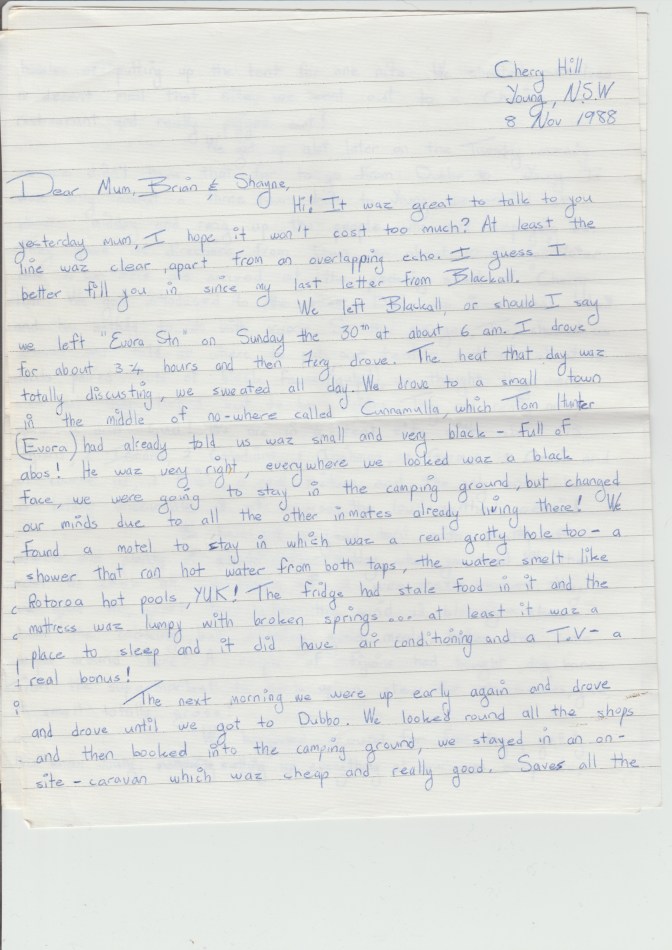 Cherry Hill
Young, N.S.W
8 Nov 1988
Dear Mum, Brian & Shayne,
Hi! It waz great to talk to you
yesterday mum, I hope it won't cost too much? At least the
line waz clear, apart from an overlapping echo. I guess I
better fill you in since my last letter from Blackall.
We left Blackall, or should I say
we left "Evora Stn" on Sunday the 30th at about 6 am. I drove
for about 3¾ hours and then drove. The heat that day waz
totally discusting, we sweated all day. We drove to a small town
in the middle of no-where called Cunnamulla, which Tom
(Evora) had already told us waz small and very black - full of
abos! He waz very right, everywhere we looked waz a black
face, we were going to stay in the camping ground, but changed
our minds due to all the other inmates already living there! We
found a motel to stay in which waz a real grotty hole too - a
shower that ran hot water from both taps, the water smelt like
Rotoroa hot pools, YUK! The fridge had stale food in it and the
mattress waz lumpy with broken springs.... at least it waz a
place to sleep and it did have air conditioning and a T.V - a
real bonus!
The next morning we were up early again and drove
and drove until we got to Dubbo. We looked round all the shops
and then booked into the camping ground, we stayed in an on-
site - caravan which waz cheap and really good. Saves all the